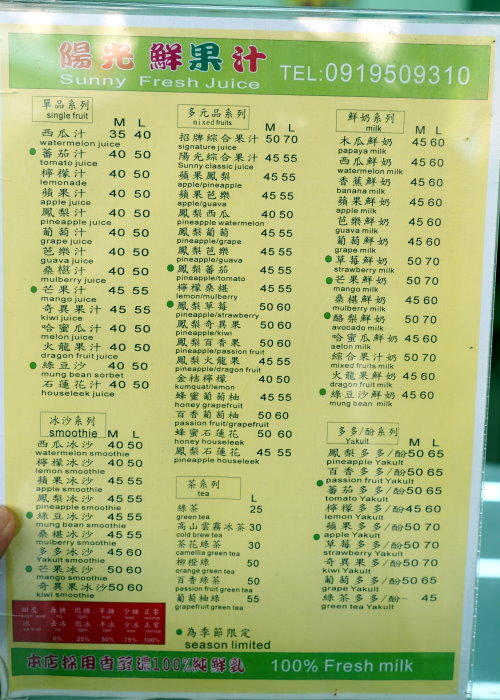 陽光鮮果汁
Sunny Fresh Juice
TEL:0919509310
單品系列
single fruit
M L
西瓜汁 35 40
watermelon juice
蕃茄汁 40 50
tomato juice
檸檬汁 40 50
lemonade
蘋果汁 40 50
apple juice
鳳梨汁 40 50
pineapple juice
葡萄汁 40 50
grape juice
芭樂汁 40 50
guava juice
桑椹汁 40 50
mulberry juice
芒果汁 45 55
mango juice
奇異果汁 45 55
kiwi juice
哈蜜瓜汁 40 50
melon juice
火龍果汁 40 50
dragon fruit juice
綠豆沙 40 50
mung bean sorbet
石蓮花汁 40 50
houseleek juice
冰沙系列
smoothie
M L
西瓜冰沙 40 50
watermelon smoothie
檸檬冰沙 40 50
lemon smoothie
蘋果冰沙 45 55
apple smoothie
鳳梨冰沙 45 55
pineapple smoothie
綠豆冰沙 45 55
mung bean smoothie
桑椹冰沙 45 55
mulberry smoothie
多多冰沙 45 60
Yakult smoothie
芒果冰沙 50 60
mango smoothie
奇異果冰沙 50 60
kiwi smoothie
甜度 無糖 微糖 半糖 少糖 正常
冰 去冰 微冰 半冰 少冰 正常
0% 25% 50% 75% 100%
多元品系列
mixed fruits
M L
招牌綜合果汁 50 70
signature juice
陽光綜合果汁 45 55
Sunny classic juice
蘋果鳳梨 45 55
apple/pineapple
蘋果芭樂 45 55
apple/guava
鳳梨西瓜 40 50
pineapple watermelon
鳳梨葡萄 45 55
pineapple/grape
鳳梨芭樂 45 55
pineapple/guava
鳳梨蕃茄 45 55
pineapple/tomato
檸檬桑椹 45 55
lemon/mulberry
鳳梨草莓 50 60
pineapple/strawberry
鳳梨奇異果 50 60
pineapple/kiwi
鳳梨百香果 50 60
pineapple/passion fruit
鳳梨火龍果 45 55
pineapple/dragon fruit
金桔檸檬 40 50
kumquat/lemon
蜂蜜葡萄柚 50 60
honey grapefruit
百香葡萄柚 50 60
passion fruit/grapefruit
蜂蜜石蓮花 50 60
honey houseleek
鳳梨石蓮花 45 55
pineapple houseleek
茶系列
tea
L
綠茶 25
green tea
高山雲霧冰茶 30
cold brew tea
茶花綠茶 30
camellia green tea
柳橙綠 50
orange green tea
百香綠茶 50
passion fruit green tea
葡萄柚綠 55
grapefruit green tea
為季節限定
season limited
鮮奶系列
milk
M L
木瓜鮮奶 45 60
papaya milk
西瓜鮮奶 45 60
watermelon milk
香蕉鮮奶 45 60
banana milk
蘋果鮮奶 45 60
apple milk
芭樂鮮奶 45 60
guava milk
葡萄鮮奶 45 60
grape milk
草莓鮮奶 50 70
strawberry milk
芒果鮮奶 50 70
mango milk
桑椹鮮奶 45 60
mulberry milk
酪梨鮮奶 50 70
avocado milk
哈蜜瓜鮮奶 45 60
aelon milk
綜合果汁鮮奶 50 70
mixed fruits milk
火龍果鮮奶 45 60
dragon fruit milk
綠豆沙鮮奶 45 60
mung bean milk
多多/酚系列
Yakult
M L
鳳梨多多/酚 50 65
pineapple Yakult
百香多多/酚 50 65
passion fruit Yakult
蕃茄多多/酚 50 65
tomato Yakult
檸檬多多/酚 45 60
lemon Yakult
蘋果多多/酚 50 70
apple Yakult
草莓多多/酚 50 70
strawberry Yakult
奇異果多多/酚 50 70
kiwi Yakult
葡萄多多/酚 50 65
grape Yakult
綠茶多多/酚 45
green tea Yakult
本店採用香醇濃100%純鮮乳
100% Fresh milk